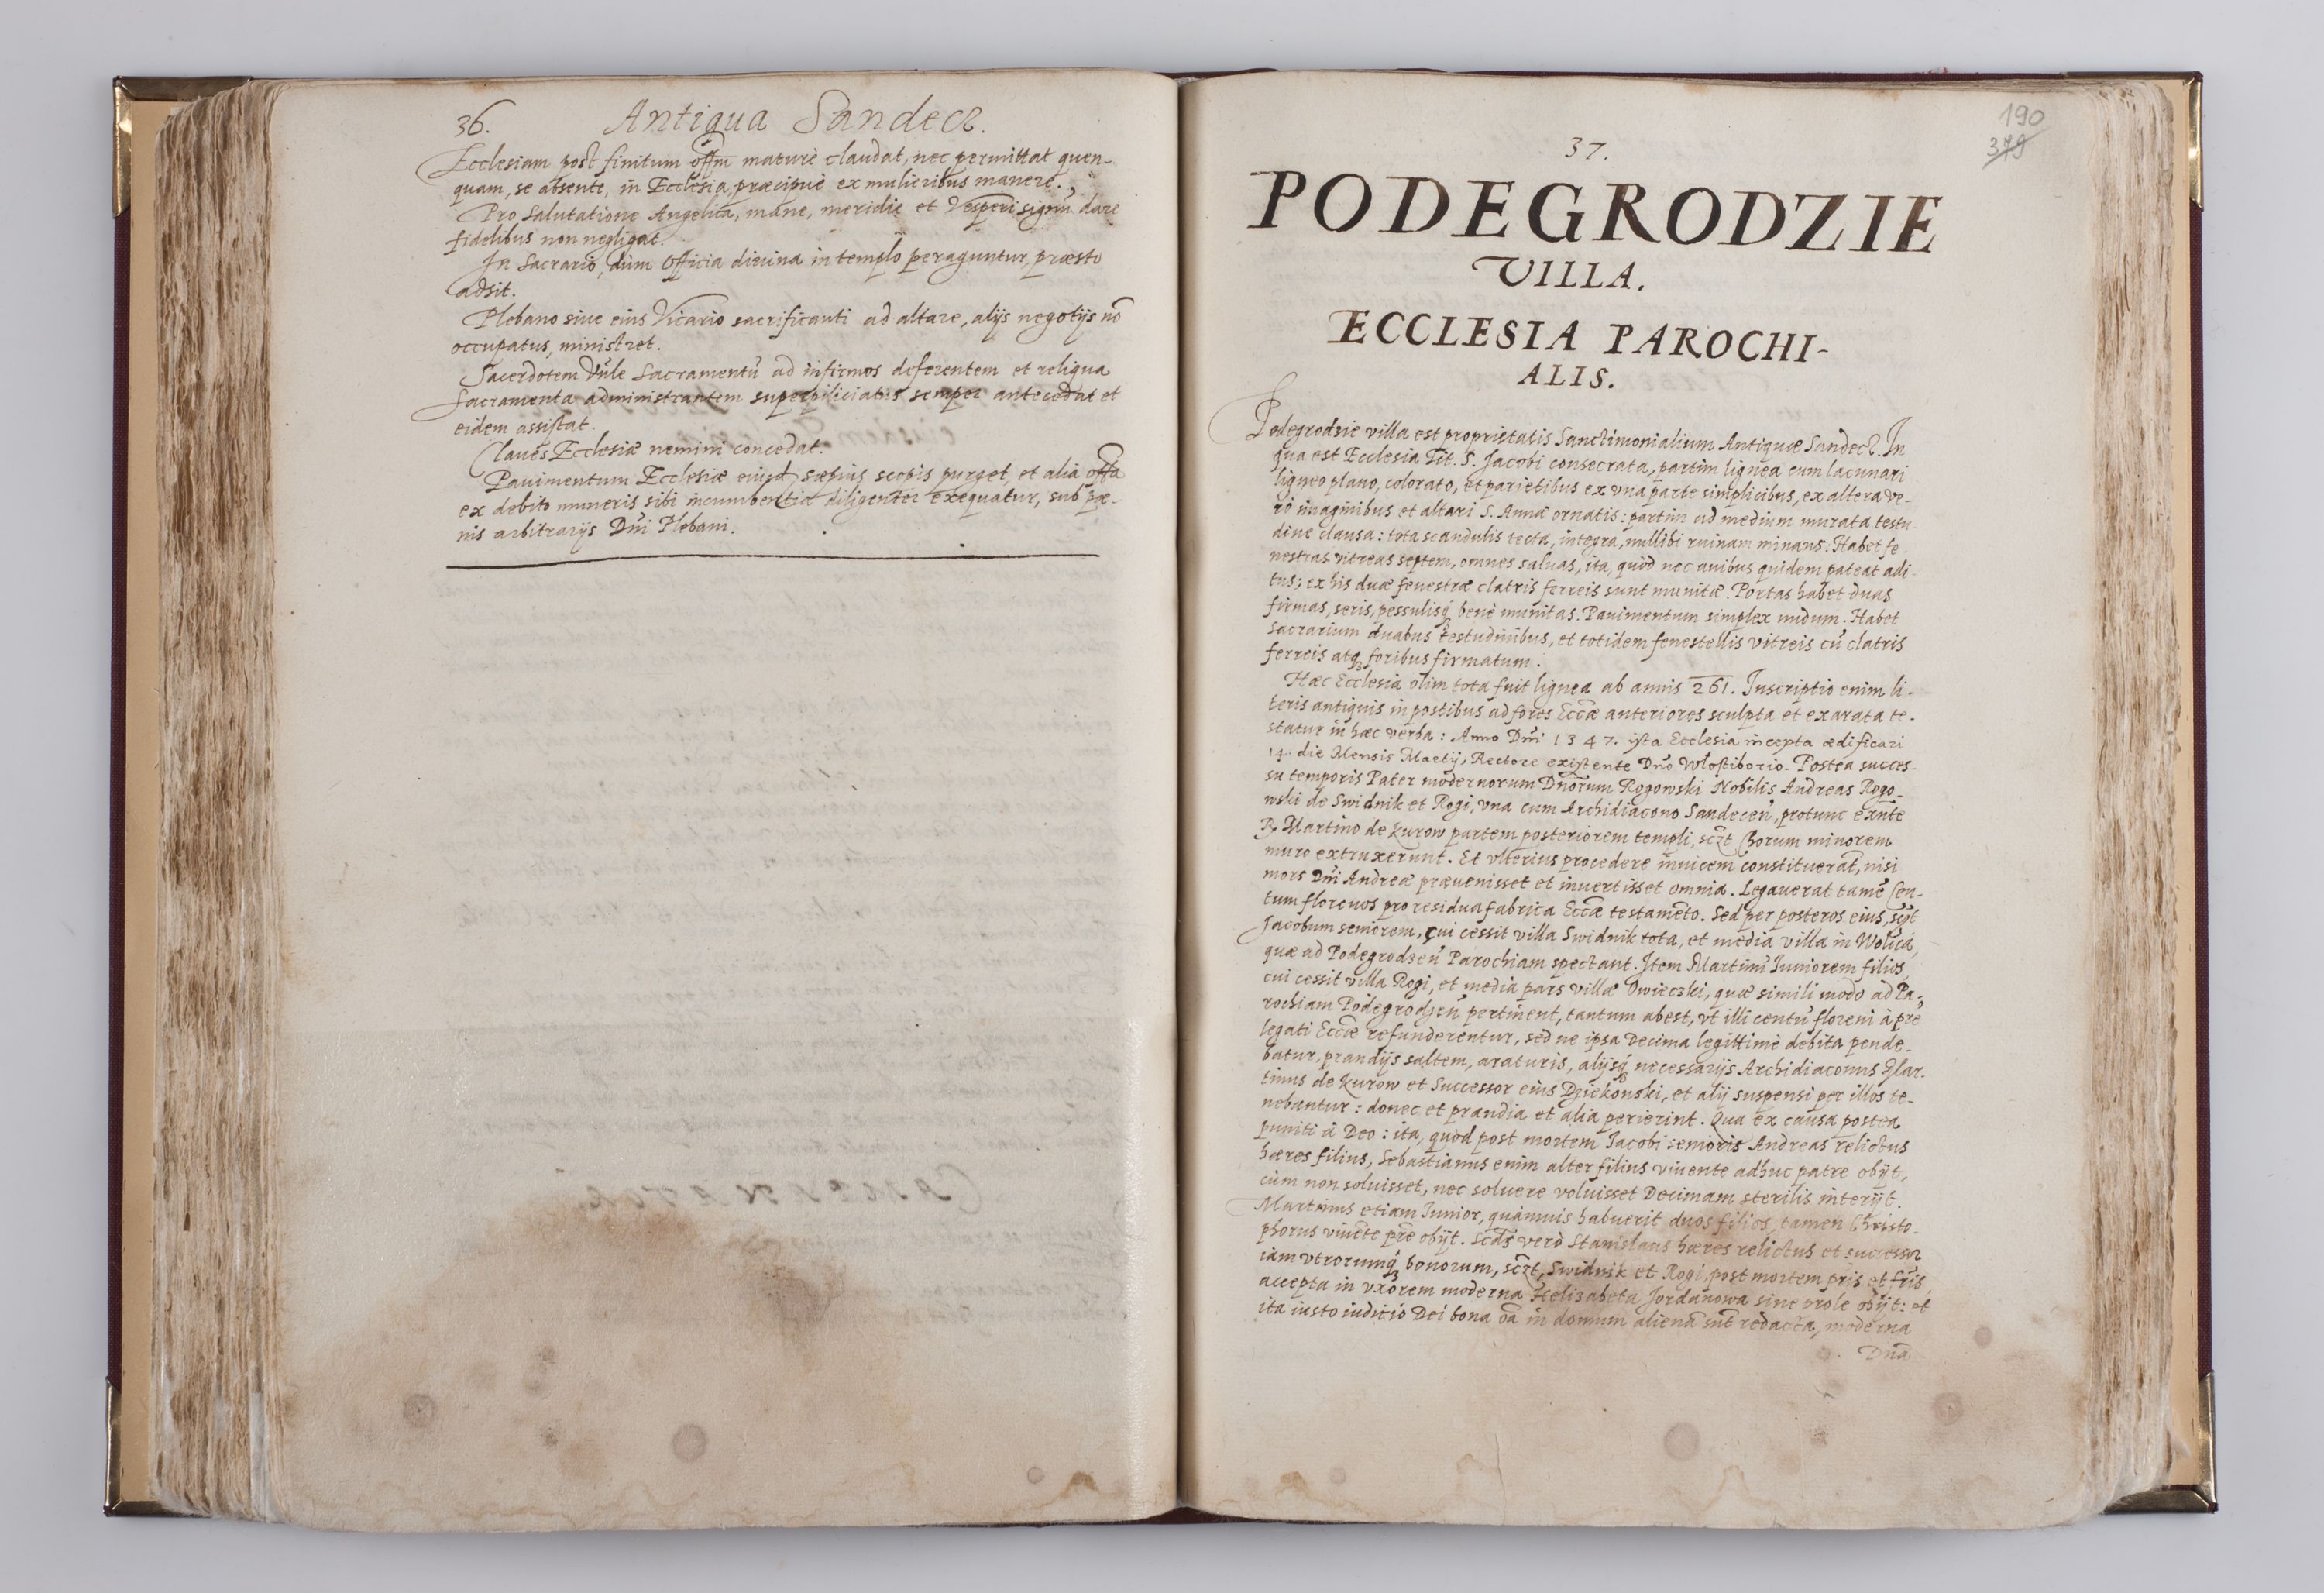 36. Antiqua Sandecz.
Ecclesiam post finitum offm̃ maturè claudat, nec permittat quen-
quam, se absente, in Ecclesia præcipuè ex mulieribus manere.
Pro Salutatione Angelica, mane, meridie et Vesperi signũ dare
fidelibus non negligat.
In Sacrario, dum Officia diuina in templo peraguntur, præsto
adsit.
Plebano siue eius Vicario sacrificanti ad altare, alijs negotijs nõ
occupatus, ministret.
Sacerdotem Vñle Sacramentũ ad infirmos deferentem et reliqua
Sacramenta administrantem superpiliciatus semper antecedat et
eidem assistat.
Claues Ecclesiæ nemini concedat.
Pauimentum Ecclesiæ eiusd sæpius scopis purget, et alia offa
ex debito muneris sibi incumbentia diligenter exequatur, sub pæ-
nis arbitrarijs Dñi Plebani.
190
379
37.
PODEGRODZIE
VILLA.
ECCLESIA PAROCHI-
ALIS.
Podegrodzie villa est proprietatis Sanctimonialium Antiquæ Sandecz. In
qua est Ecclesia Tit. S. Jacobi consecrata, partim lignea cum lacunari
ligneo plano, colorato, et parietibus ex vna parte simplicibus, ex altera ve-
rò imaginibus et altari S. Annæ ornatis: partim ad medium murata testu
dine clausa: tota scandulis tecta, integra, nullibi ruinam minans: Habet fe
nestras vitreas septem, omnes saluas, ita, quòd nec auibus quidem pateat adi-
tus; ex his duæ fenestræ clatris ferreis sunt munitæ. Portas habet duas
firmas, seris, pessulisq; benè munitas. Pauimentum simplex nudum. Habet
sacrarium duabus testudinibus, et totidem fenestellis vitreis cũ clatris
ferreis atq; foribus firmatum.
Hæc Ecclesia olim tota fuit lignea ab annis 261. Inscriptio enim li-
teris antiquis in postibus ad fores Eccæ anteriores sculpta et exarata te-
statur in hæc verba: Anno Dñi 1347. ista Ecclesia incepta ædificari
14. die Mensis Martij, Rectore existente Dño Wlostiborio. Postea succes-
su temporis Pater modernorum Dñorum Rogowski Nobilis Andreas Rogo-
wski de Swidnik et Rogi, vna cum Archidiacono Sandecen, protunc exñte
R. Martino de Kurow partem posteriorem templi, sczt Chorum minorem
muro extruxerunt. Et vlterius procedere inuicem constituerat, nisi
mors Dñi Andreæ præuenisset et inuertisset omnia. Legauerat tamẽ Cen-
tum florenos pro residua fabrica Eccæ testamẽto. Sed per posteros eius, sczt
Jacobum seniorem, cui cessit villa Swidnik tota, et media villa in Wolica,
quæ ad Podegrodzeñ Parochiam spectant. Item Martinũ Iuniorem filios,
cui cessit villa Rogi, et media pars villæ Owieczki, quæ simili modo ad Pa-
rochiam Podegrodzeñ pertinent, tantum abest, vt illi centũ floreni à prẽ
legati Eccæ refunderentur, sed ne ipsa Decima legittimè debita pende-
batur, prandijs saltem, araturis, alijsq; necessarijs Archidiaconus Mar-
tinus de Kurow et Successor eius Dziekonski, et alij suspensi per illos te-
nebantur: donec et prandia et alia perierint. Qua ex causa postea
puniti à Deo: ita, quòd post mortem Jacobi senioris Andreas relictus
hæres filius, Sebastianus enim alter filius viuente adhuc patre obijt,
cùm non soluisset, nec soluere voluisset Decimam sterilis interijt.
Martinus etiam Iunior, quàmuis habuerit duos filios, tamen Christo-
phorus viuẽte prẽ obijt. Scds verò Stanislaus hæres relictus et successor
iam vtrorumq; bonorum, sczt, Swidnik et Rogi, post mortem pris et fris,
accepta in vxorem moderna Helizabeta Jordanowa sine prole obijt: et
ita iusto iudicio Dei bona oã in domum alienã sũt redacta, moderna
Dña